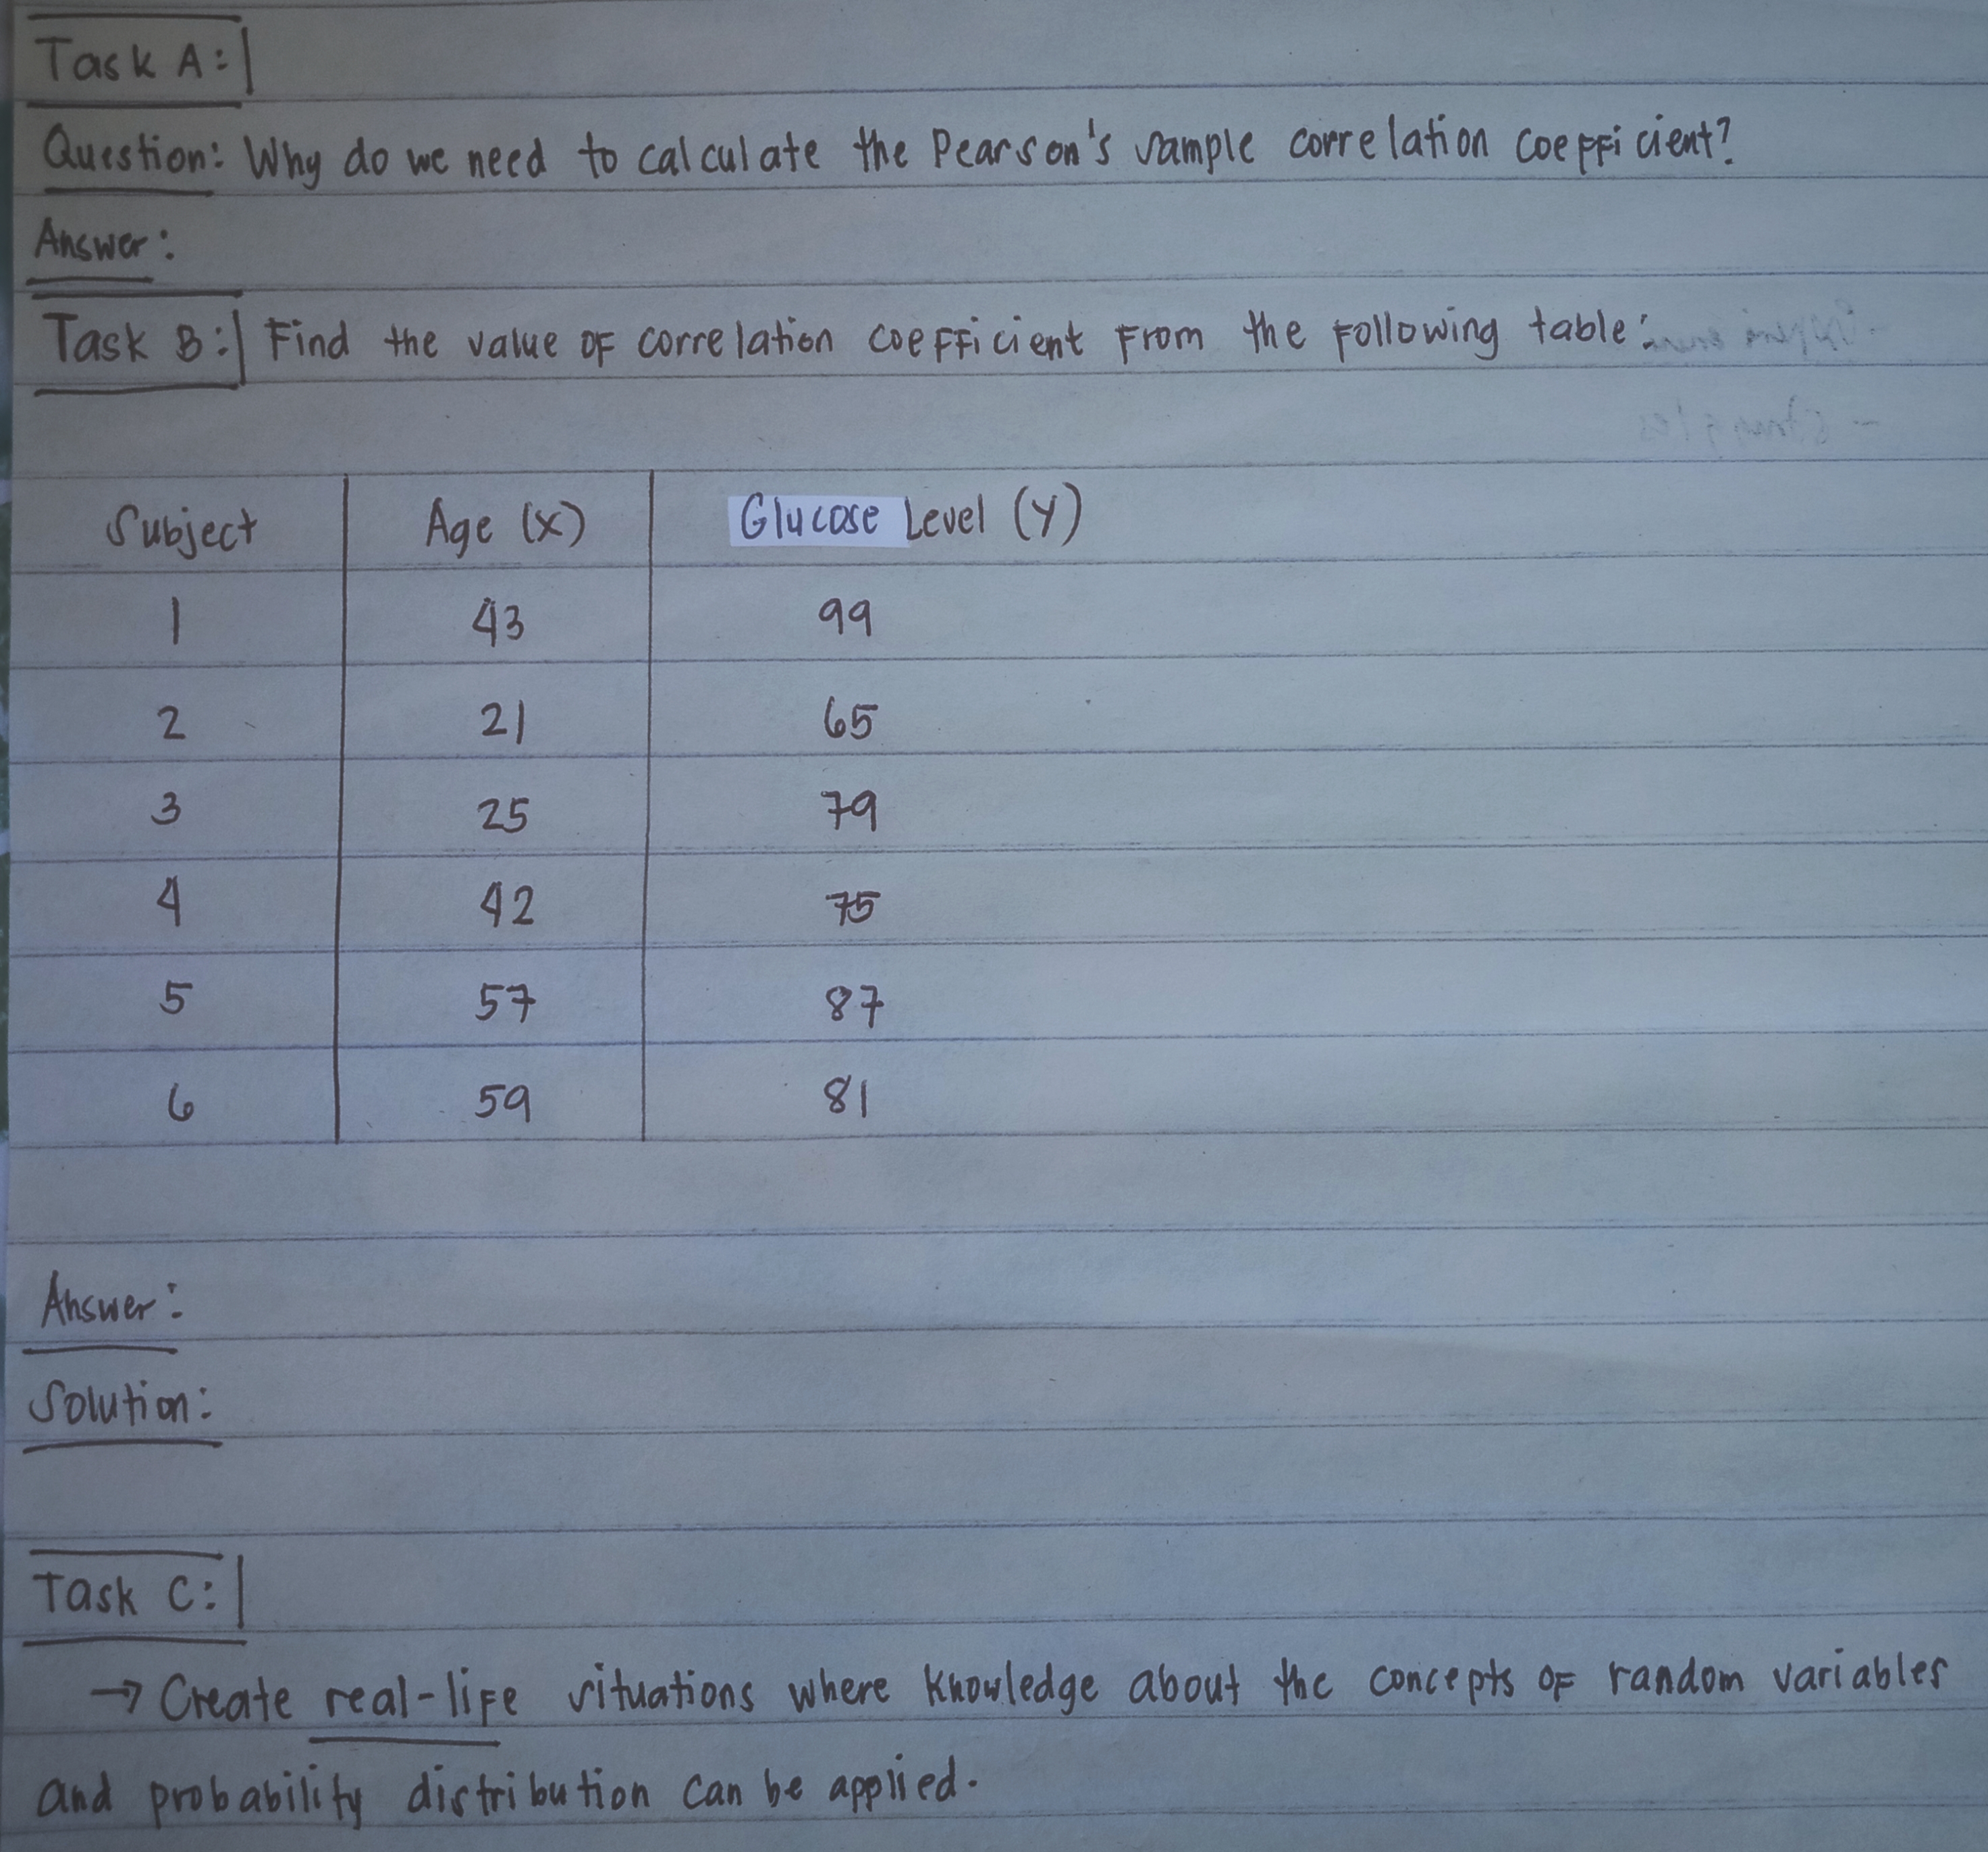 Task A:
Question: Why do we need to calculate the Pearson's sample correlation coefficient?
Answer:
Task B: Find the value of correlation coefficient from the following table:
Subject Age (x) Glucose Level (y)
1 43 99
2 21 65
3 25 79
4 42 75
5 57 87
6 59 81
Answer:
Solution:
Task C:
→ Create real-life situations where knowledge about the concepts of random variables
and probability distribution can be applied.